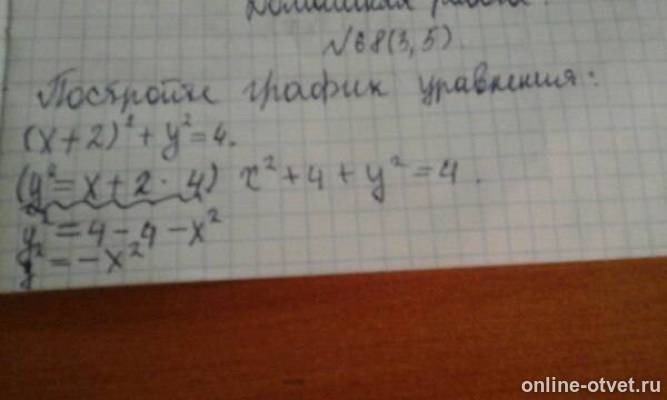 Домашняя работа.
№68(3,5).
Постройте график уравнения:
(x+2)²+y²=4.
(y²=x+2·4) x²+4+y²=4.
y²=4-4-x²
y²=-x²
online-otvet.ru